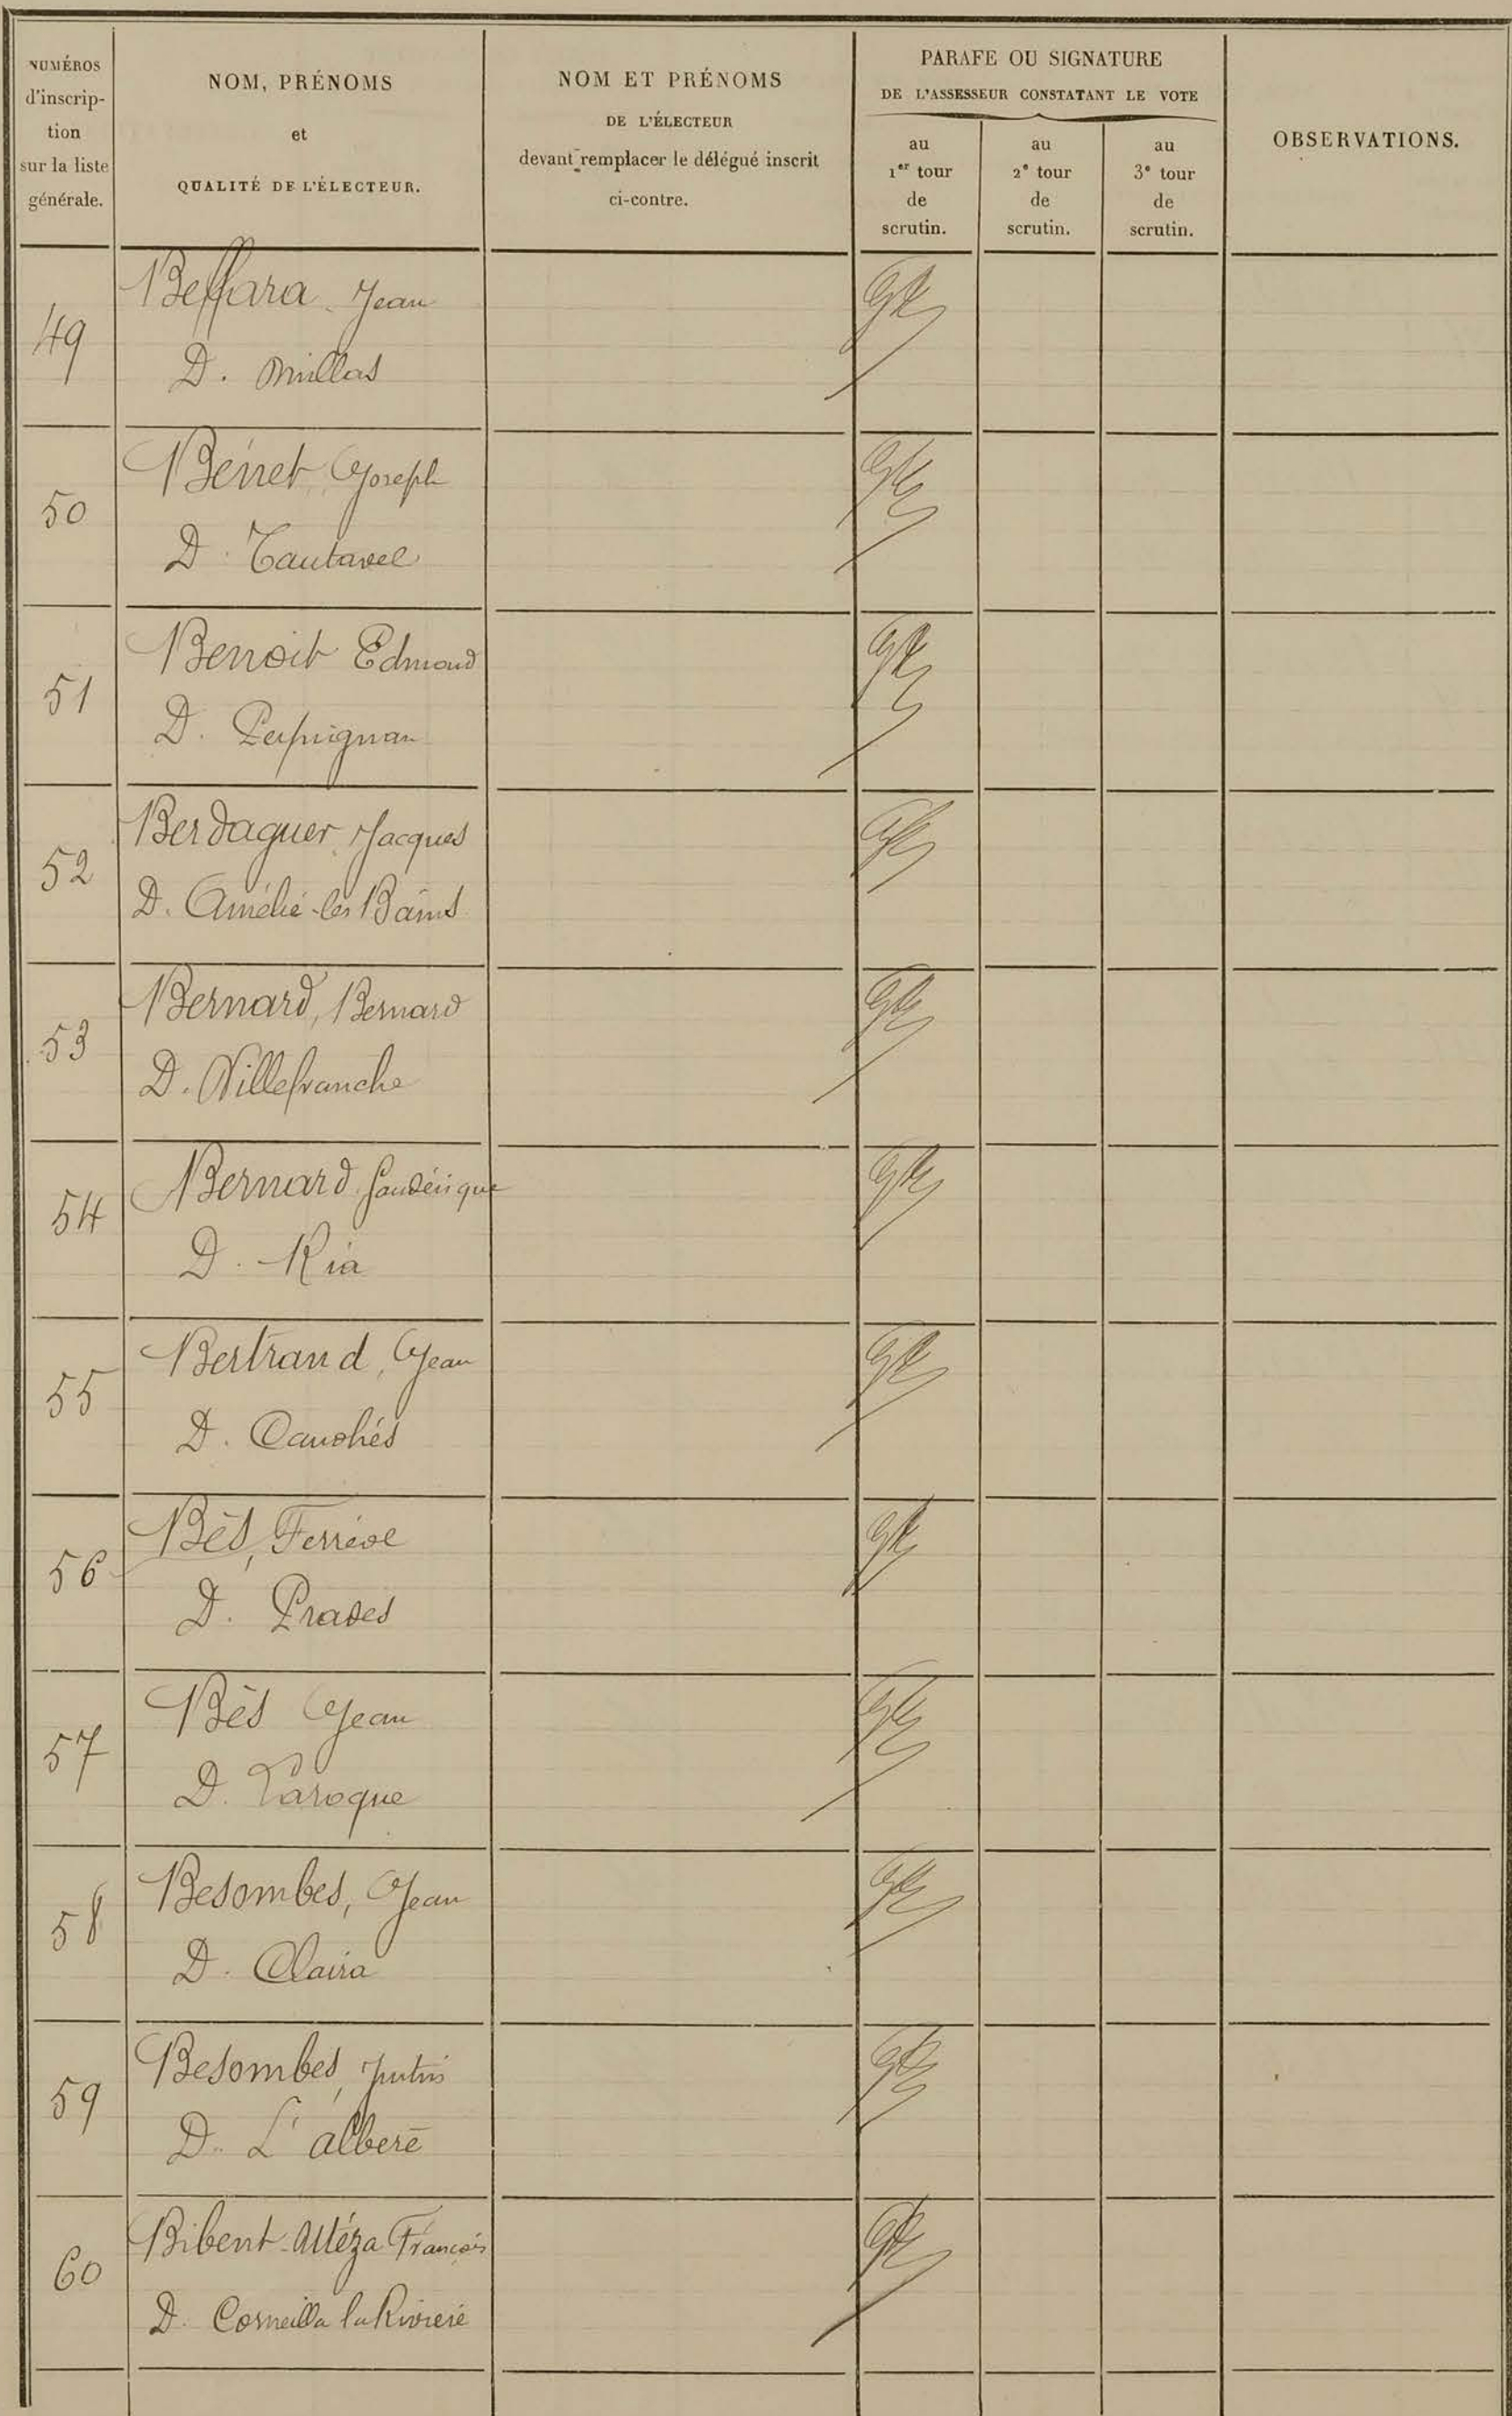 NUMÉROS
d'inscrip-
tion
sur la liste
générale.
NOM, PRÉNOMS
et
QUALITÉ DE L'ÉLECTEUR.
NOM ET PRÉNOMS
DE L'ÉLECTEUR
devant remplacer le délégué inscrit
ci-contre.
PARAFE OU SIGNATURE
DE L'ASSESSEUR CONSTATANT LE VOTE
au
1er tour
de
scrutin.
au
2e tour
de
scrutin.
au
3e tour
de
scrutin.
OBSERVATIONS.
49
Beffara Jean
D. Millas
50
Joseph
D. Tautavel
51
Benoit Edmond
D. Perpignan
52
Berdaguer Jacques
D. Amélie-les Bains
53
Bernard, Bernard
D. Villefranche
54
Bernard Gaudérique
D. Ria
55
Bertrand, Jean
D. Canohés
56
Bès, Ferréol
D. Prades
57
Bès Jean
D. Laroque
58
Besombes, Jean
D. Claira
59
Besombes, Justin
D. L'albère
60
Bibent-Attéza François
D. Corneilla la Rivière